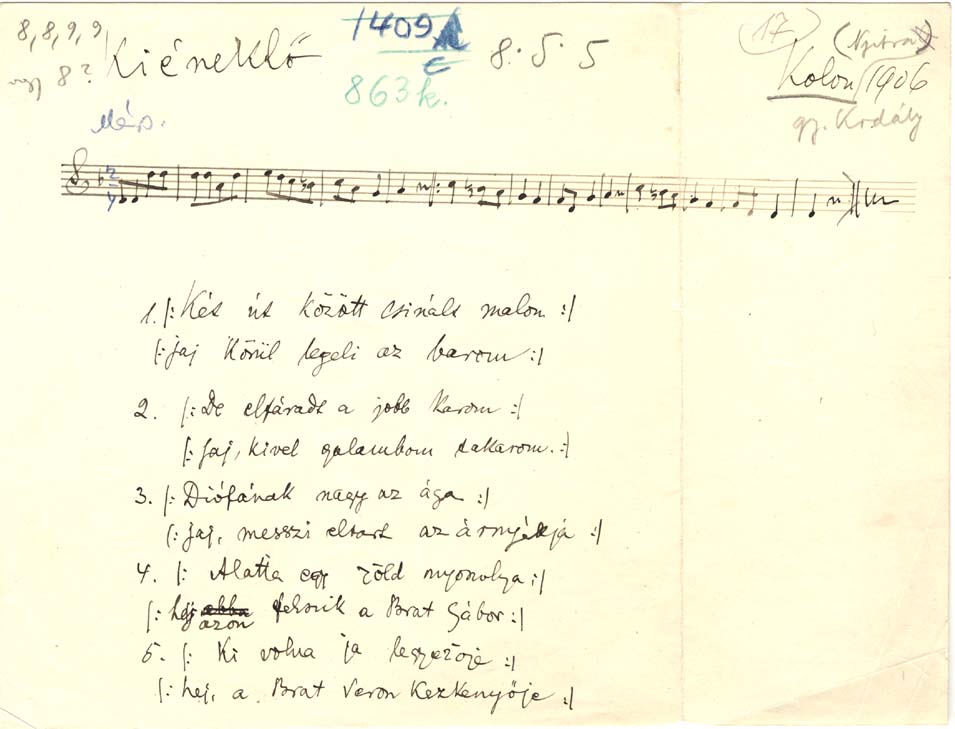 8, 8, 9, 9
8? Kiéneklő
1409 A
C
8 5 5
863 k.
17
(Nyitra)
Kolon, 1906
gy. Kodály
1. |: Két út között csinált malom :|
|: jaj körül legeli az barom :|
2. |: De elfáradt a jobb karom :|
|: Jaj, kivel galambom takarom. :|
3. |: Diófának nagy az ága :|
|: Jaj, messzi eltart az árnyékja :|
4. |: Alatta egy zöld nyoszolya :|
|: hej azon fekszik a Brat Gábor :|
5. |: Ki volna ja legyezője :|
|: hej, a Brat Veron Kezkenyője :|